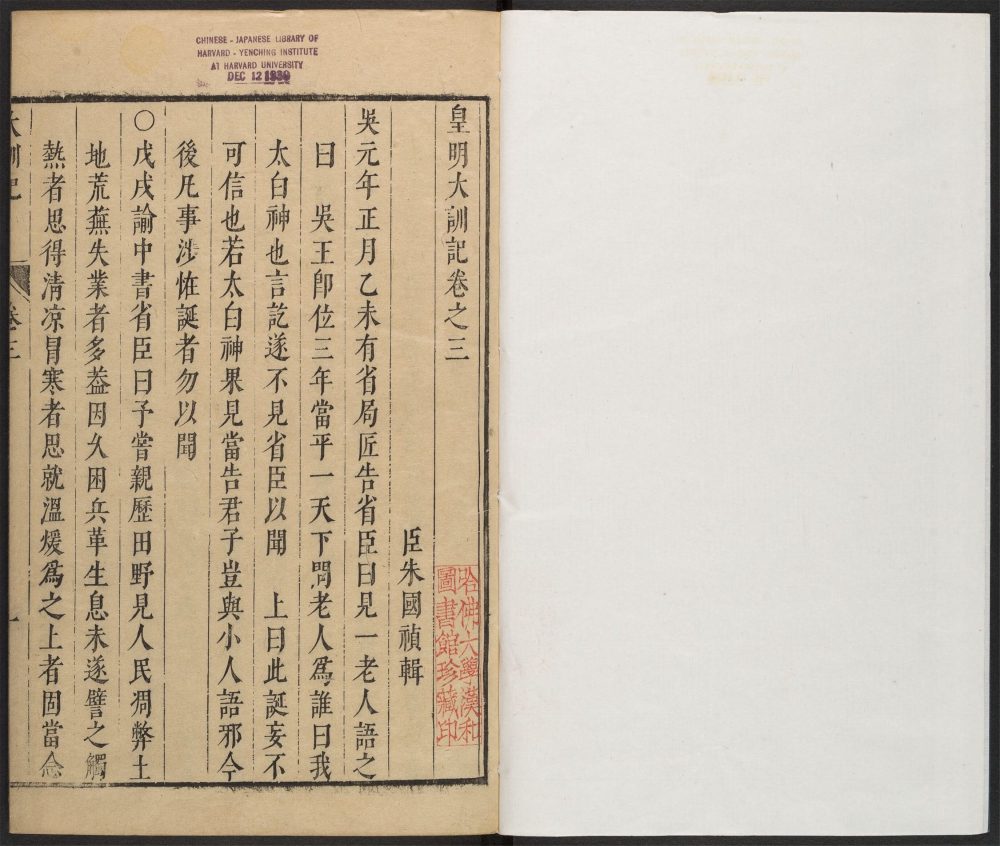 CHINESE - JAPANESE LIBRARY OF
HARVARD - YENCHING INSTITUTE
AT HARVARD UNIVERSITY
DEC 12 1930
皇明大訓記卷之三
臣朱國禎輯
哈佛大學漢和
圖書館珍藏印
吳元年正月乙未有省局匠告省臣曰見一老人語之
曰　吳王卽位三年當平一天下問老人爲誰曰我
太白神也言訖遂不見省臣以聞　上曰此誕妄不
可信也若太白神果見當告君子豈與小人語邪今
後凡事涉恠誕者勿以聞
○戊戌諭中書省臣曰予嘗親歷田野見人民凋弊土
地荒蕪失業者多葢因久困兵革生息未遂譬之觸
熱者思得清凉冒寒者思就溫煖爲之上者固當念
大訓記　卷三　一